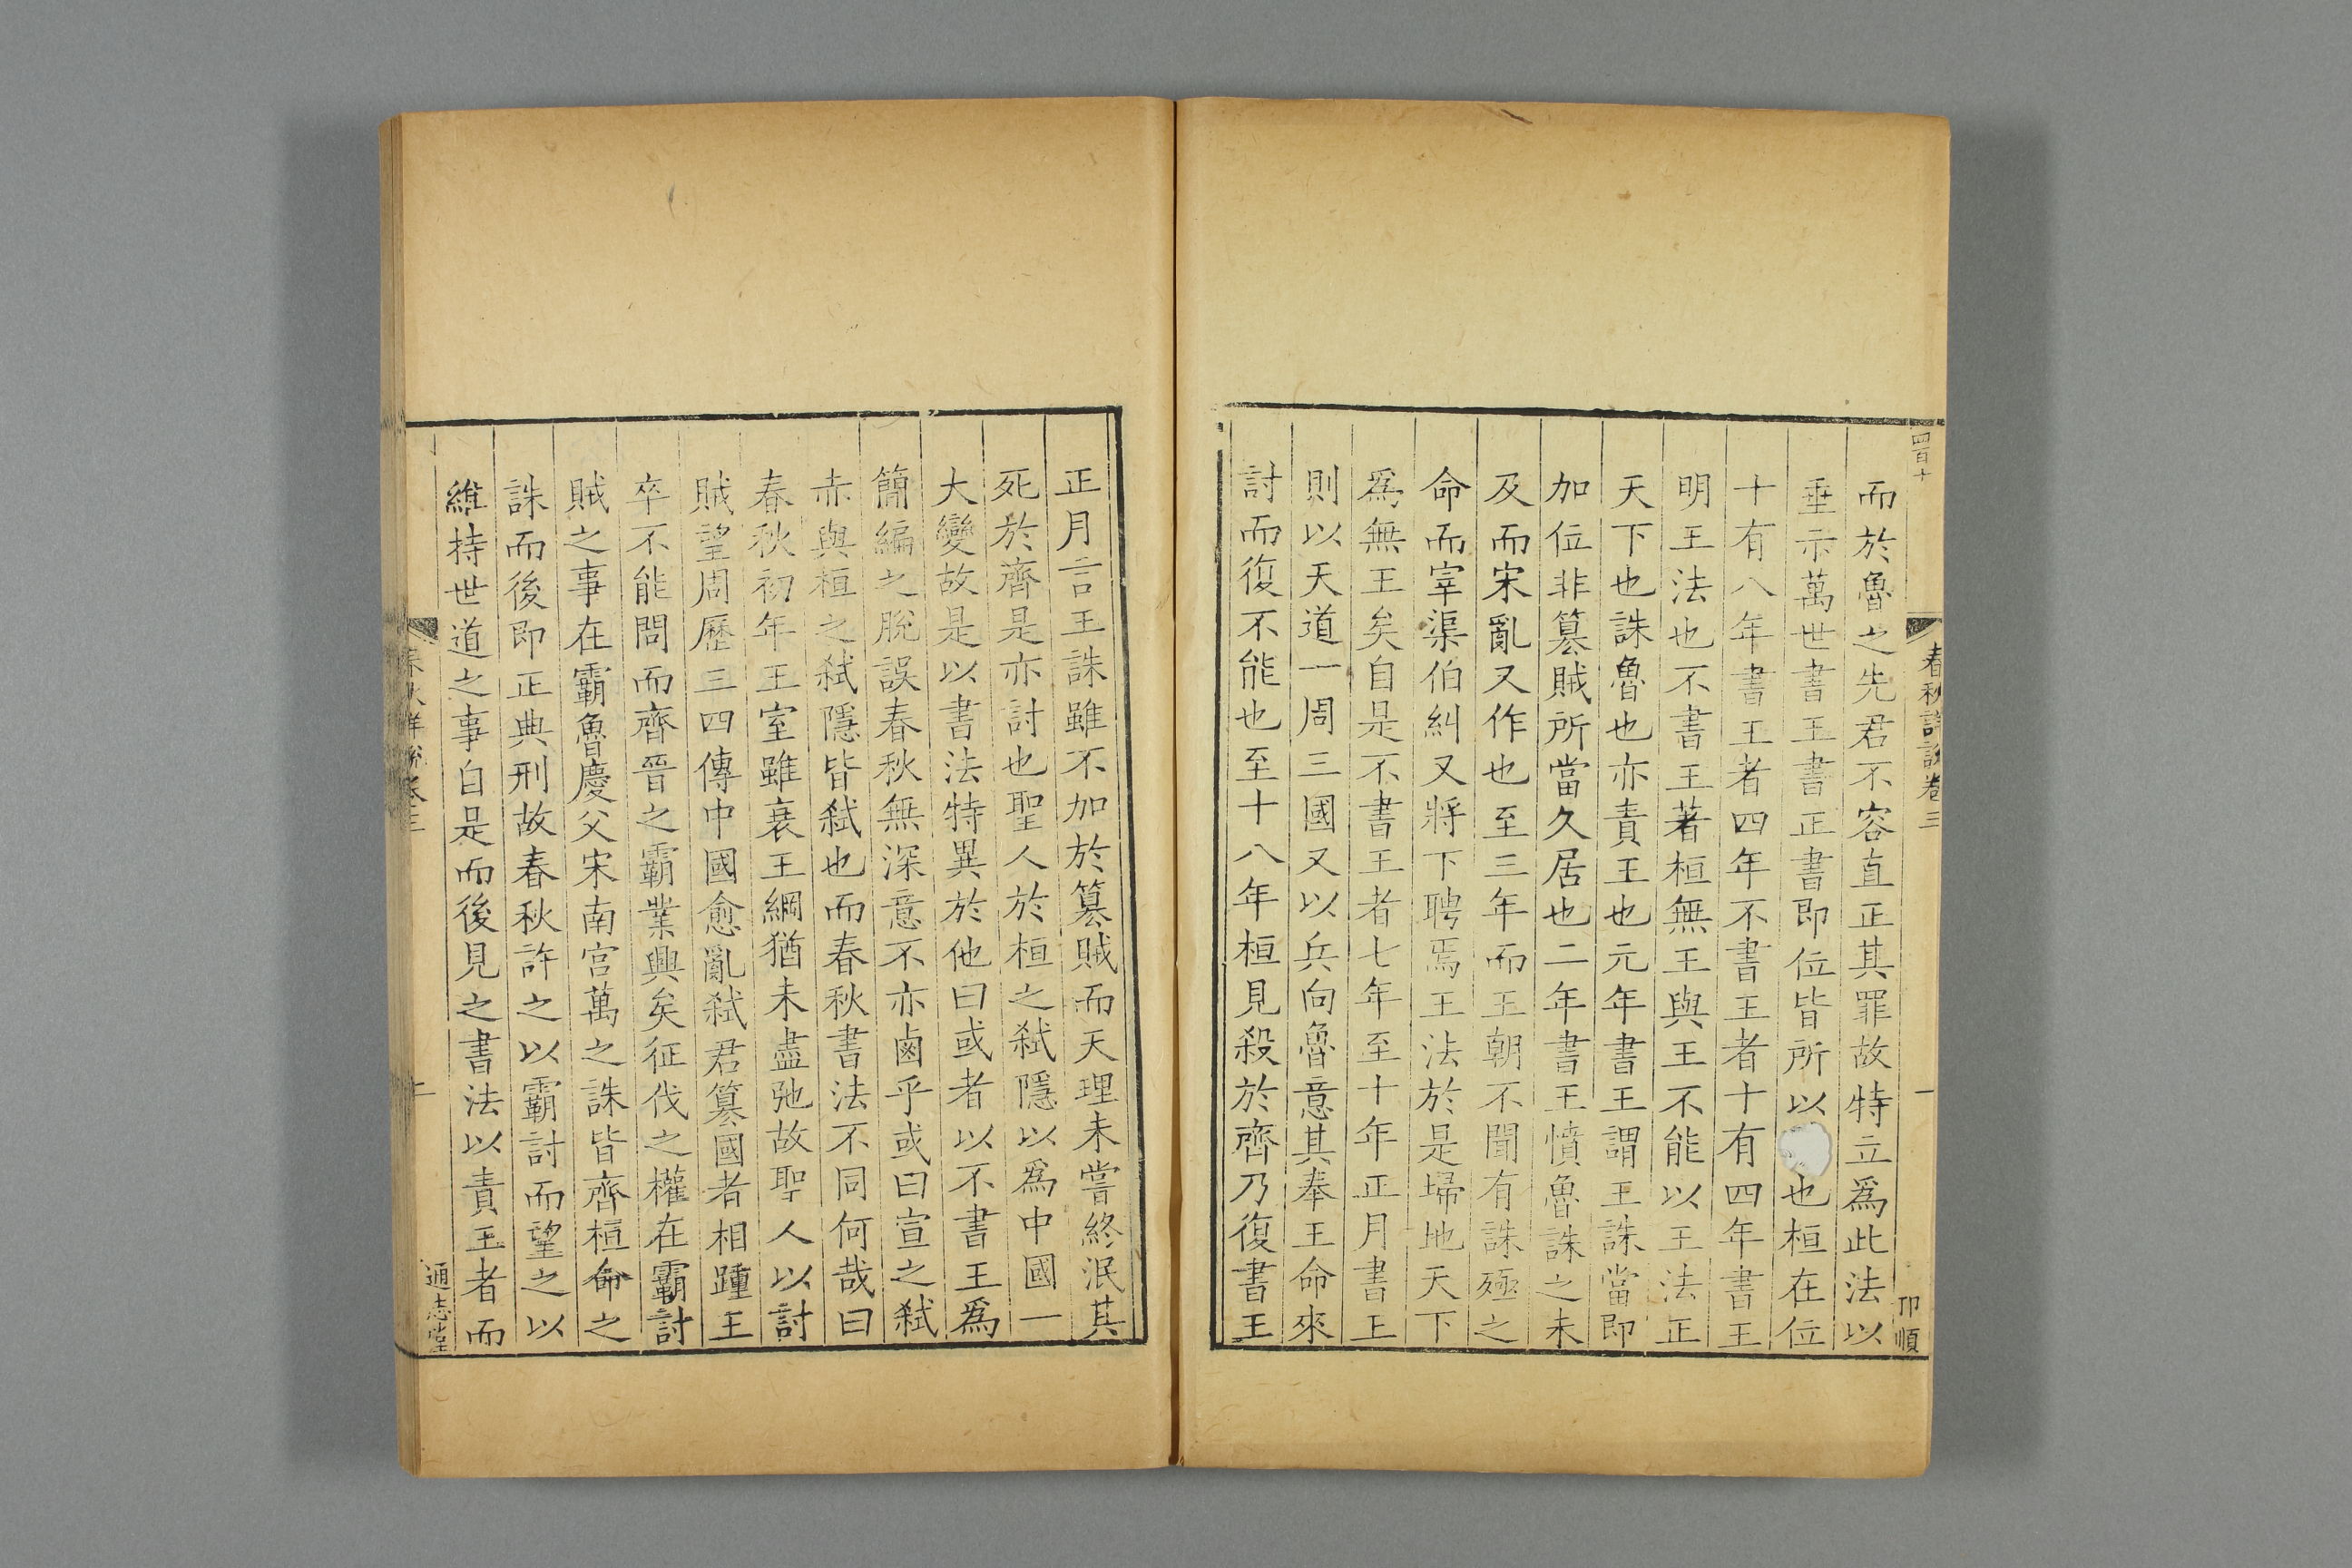 四百十
春秋詳說卷三
一
卬順
而於魯之先君不容直正其罪故特立爲此法以
垂示萬世書王書正書即位皆所以也桓在位
十有八年書王者四年不書王者十有四年書王
明王法也不書王著桓無王與王不能以王法正
天下也誅魯也亦責王也元年書王謂王誅當即
加位非篡賊所當久居也二年書王憤魯誅之未
及而宋亂又作也至三年而王朝不聞有誅殛之
命而宰渠伯糾又將下聘焉王法於是埽地天下
爲無王矣自是不書王者七年至十年正月書王
則以天道一周三國又以兵向魯意其奉王命來
討而復不能也至十八年桓見殺於齊乃復書王
正月言王誅雖不加於篡賊而天理未嘗終泯其
死於齊是亦討也聖人於桓之弑隱以爲中國一
大變故是以書法特異於他曰或者以不書王爲
簡編之脫誤春秋無深意不亦鹵乎或曰宣之弑
赤與桓之弑隱皆弑也而春秋書法不同何哉曰
春秋初年王室雖衰王綱猶未盡弛故聖人以討
賊望周歷三四傳中國愈亂弑君篡國者相踵王
卒不能問而齊晉之霸業興矣征伐之權在霸討
賊之事在霸魯慶父宋南宫萬之誅皆齊桓命之
誅而後即正典刑故春秋許之以霸討而望之以
維持世道之事自是而後見之書法以責王者而
春秋詳說卷三
通志堂